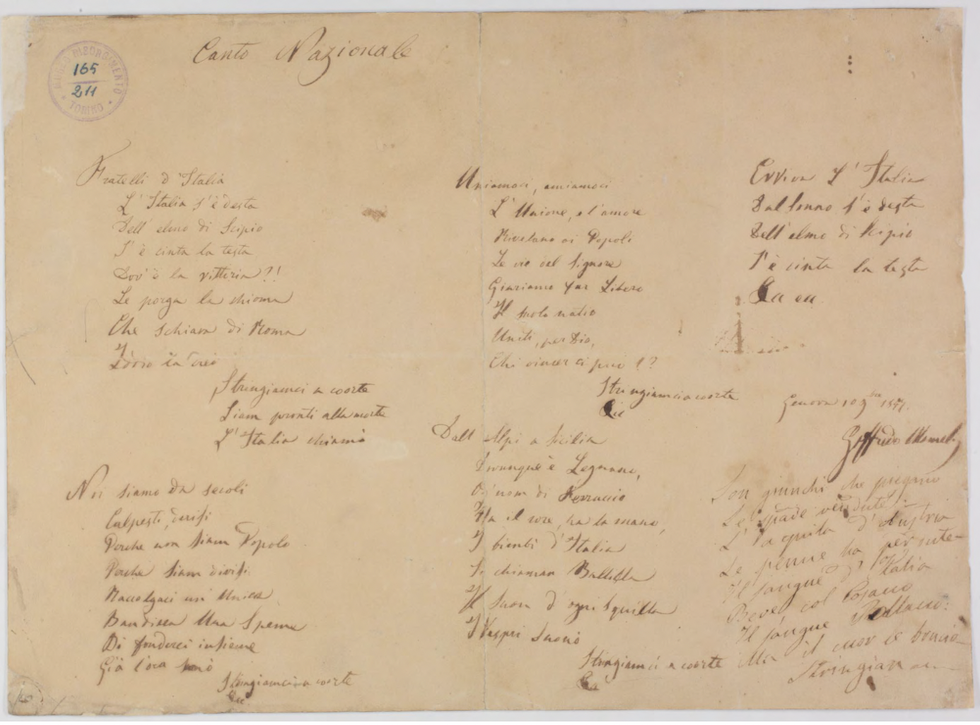 Canto Nazionale
MUSEO RISORGIMENTO
165
211
TORINO
Fratelli d'Italia
L'Italia s'è desta
Dell'elmo di Scipio
S'è cinta la testa
Dov'è la vittoria?!
Le porga la chioma
Che schiava di Roma
Iddio la creò
Stringiamci a coorte
Siam pronti alla morte
L'Italia chiamò
Noi siamo da secoli
Calpesti, derisi
Perche non siam Popolo
Perche siam divisi
Raccolgaci un'Unica
Bandiera Una Speme
Di fonderci insieme
Già l'ora suonò
Stringiamci a coorte
Uniamoci, amiamoci
L'Unione, e l'amore
Rivelano ai Popoli
Le vie del Signore
Giuriamo far Libero
Il suolo natio
Uniti, per Dio,
Chi vincer ci può!?
Stringiamci a coorte
Dall'Alpi a Sicilia
Dovunque è Legnano,
Ogn'uom di Ferruccio
Ha il core, ha la mano,
I bimbi d'Italia
Si chiaman Balilla
Il suon d'ogni squilla
I Vespri suonò
Stringiamci a coorte
Evviva l'Italia
Dal sonno s'è desta
Dell'elmo di Scipio
S'è cinta la testa
Genova 10 9bre
Goffredo Mameli
Son giunchi che piegano
Le spade vendute
L'Aquila d'Austria
Le penne ha perdute
Il sangue d'Italia
Bevé col Cosacco
Il sangue Polacco:
Ma il cuor le bruciò
Stringiam